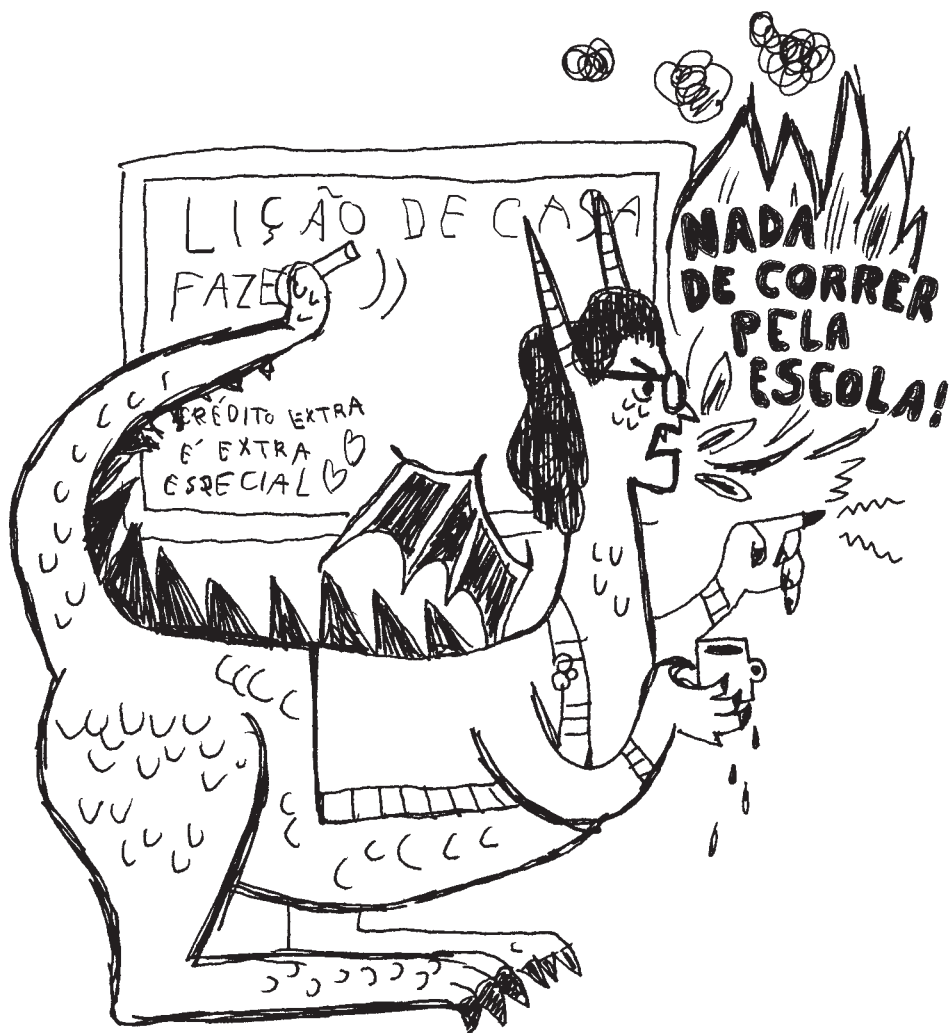 LIÇÃO DE CASA
FAZE
CRÉDITO EXTRA
É EXTRA
ESPECIAL
NADA
DE CORRER
PELA
ESCOLA!